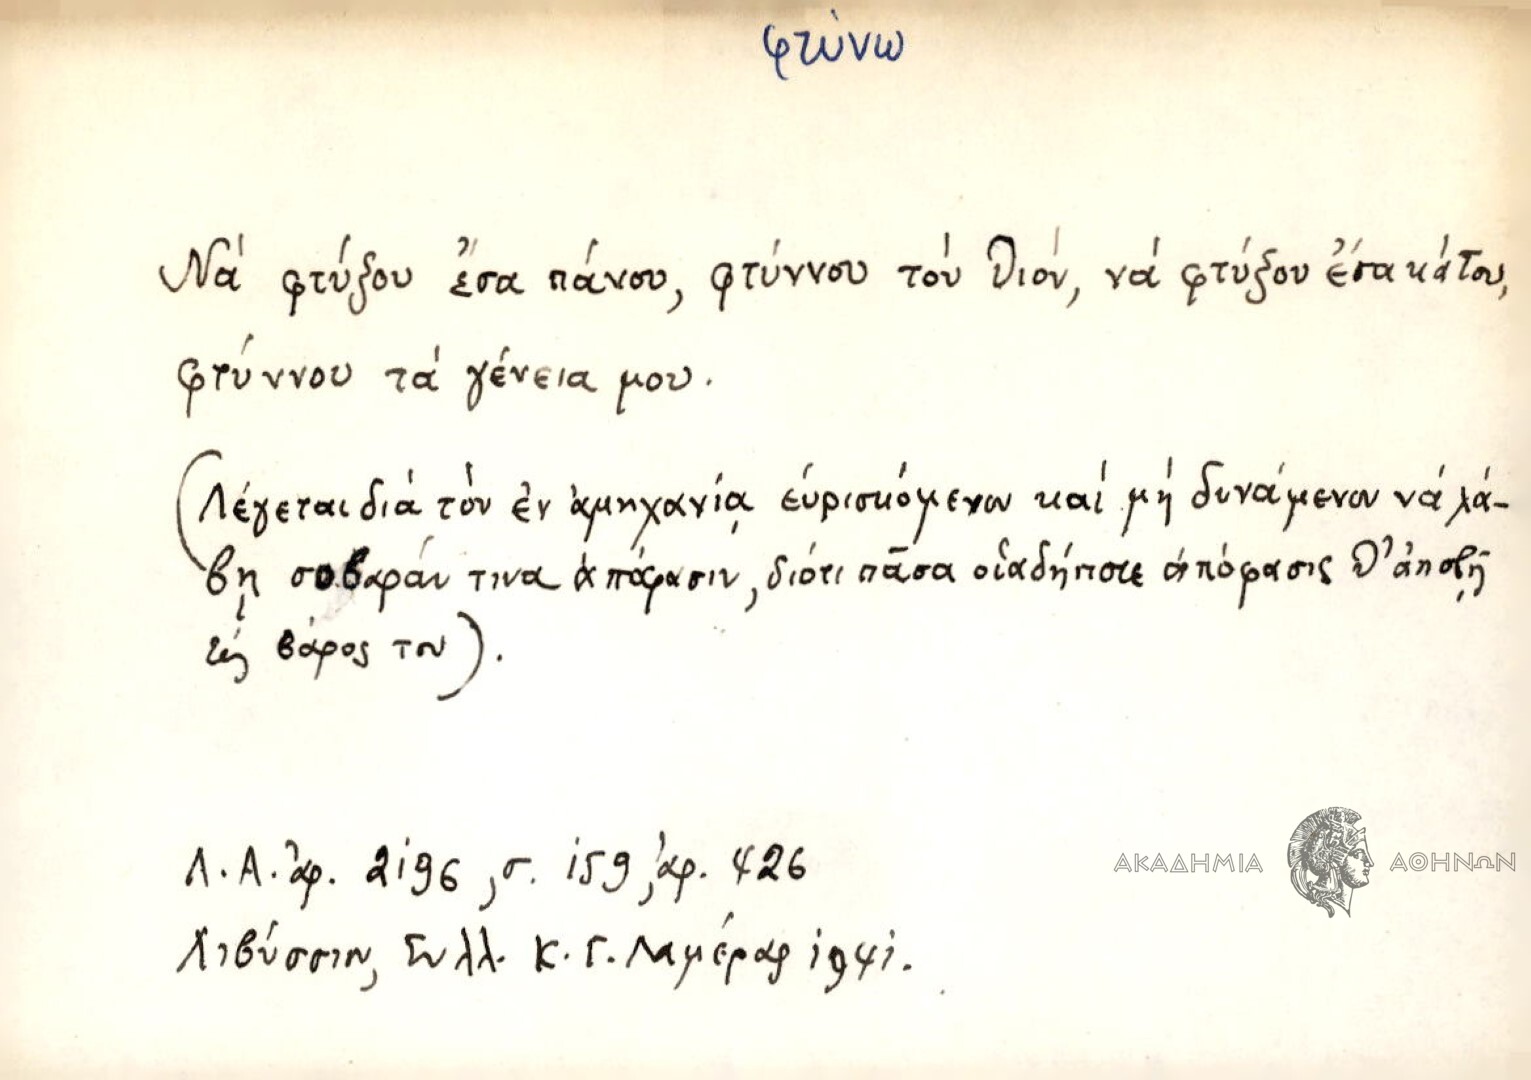 φτύνω
Νά φτύξου ἔσα πάνου, φτύννου τόν Θιόν, νά φτύξου ἔσα κάτου,
φτύννου τά γένεια μου.
(Λέγεται διά τόν ἐν ἀμηχανίᾳ εὑρισκόμενον καί μή δυνάμενον νά λά-
βῃ σοβαράν τινα ἀπόφασιν, διότι πᾶσα οἱαδήποτε ἀπόφασις θ' ἀποβῇ
εἰς βάρος του).
Λ. Α. ἀρ. 2196, σ. 159, ἀρ. 426
Λιβύσσιν, Συλλ. Κ. Γ. Λαμέρας 1941.
ΑΚΑΔΗΜΙΑ ΑΘΗΝΩΝ